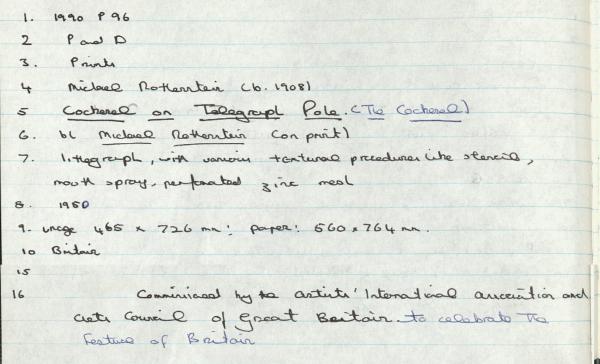 1. 1990 P 96
2 P and D
3. Prints
4 Michael Rothenstein (b. 1908)
5 Cockerel on Telegraph Pole. (The Cockerel)
6. bl Michael Rothenstein (on print)
7. lithograph, with various textural procedures like stencil,
mouth spray, perforated zinc mesh
8. 1950
9. image 465 x 726 mm: paper: 560 x 764 mm.
10 Britain
15
16 Commissioned by the Artists' International Association and
Arts Council of Great Britain to celebrate the
Festival of Britain